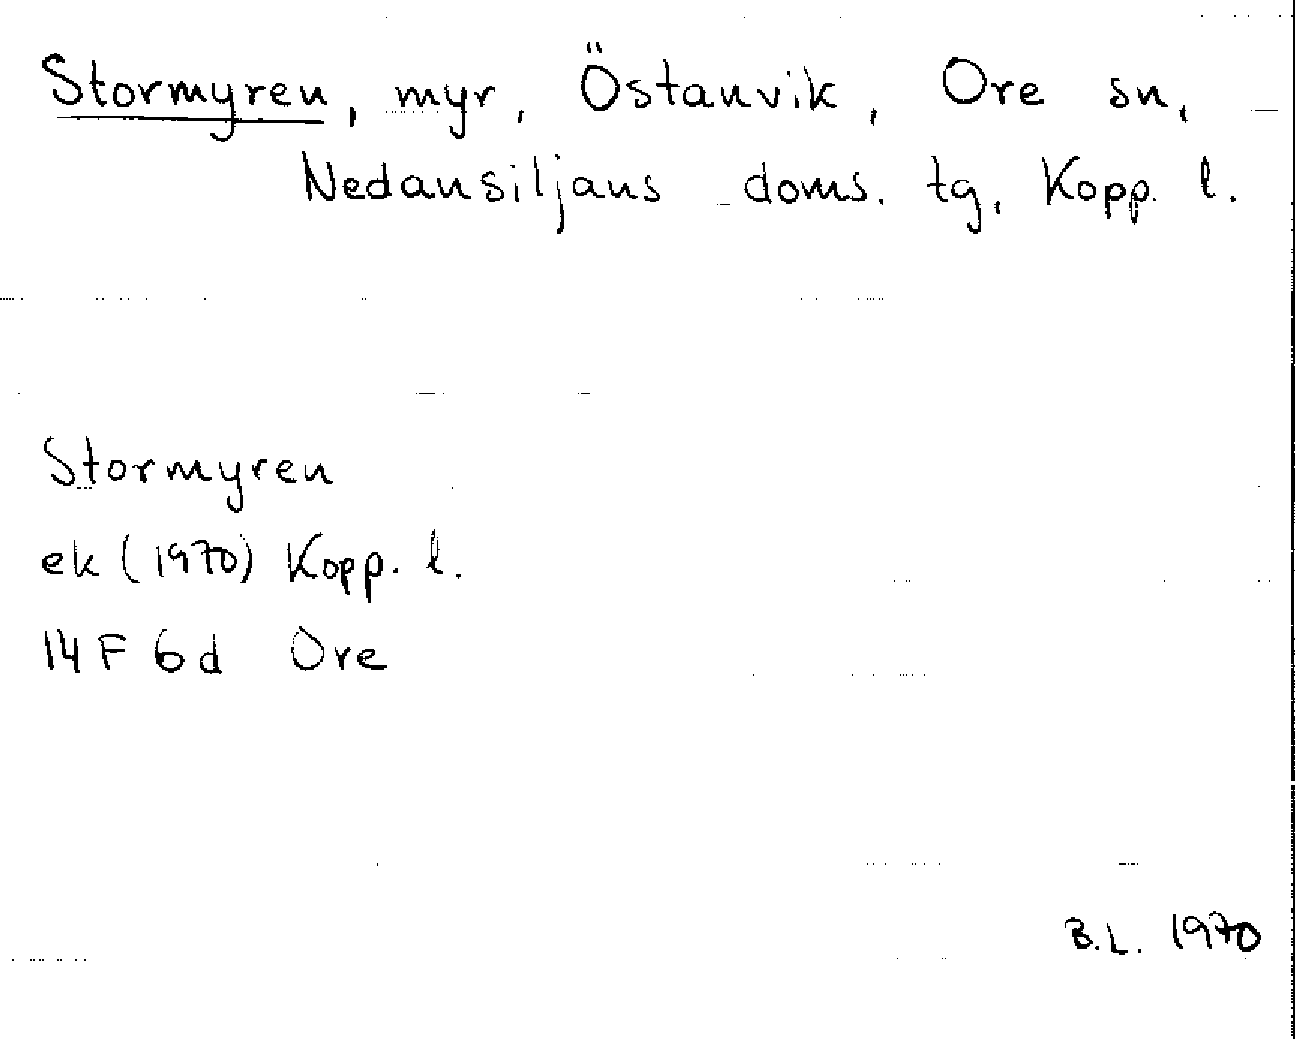 Stormyren, myr, Östanvik, Ore sn,
Nedansiljans doms. tg, Kopp. l.
Stormyren
ek (1970) Kopp. l.
14 F 6 d Ore
B.L. 1970